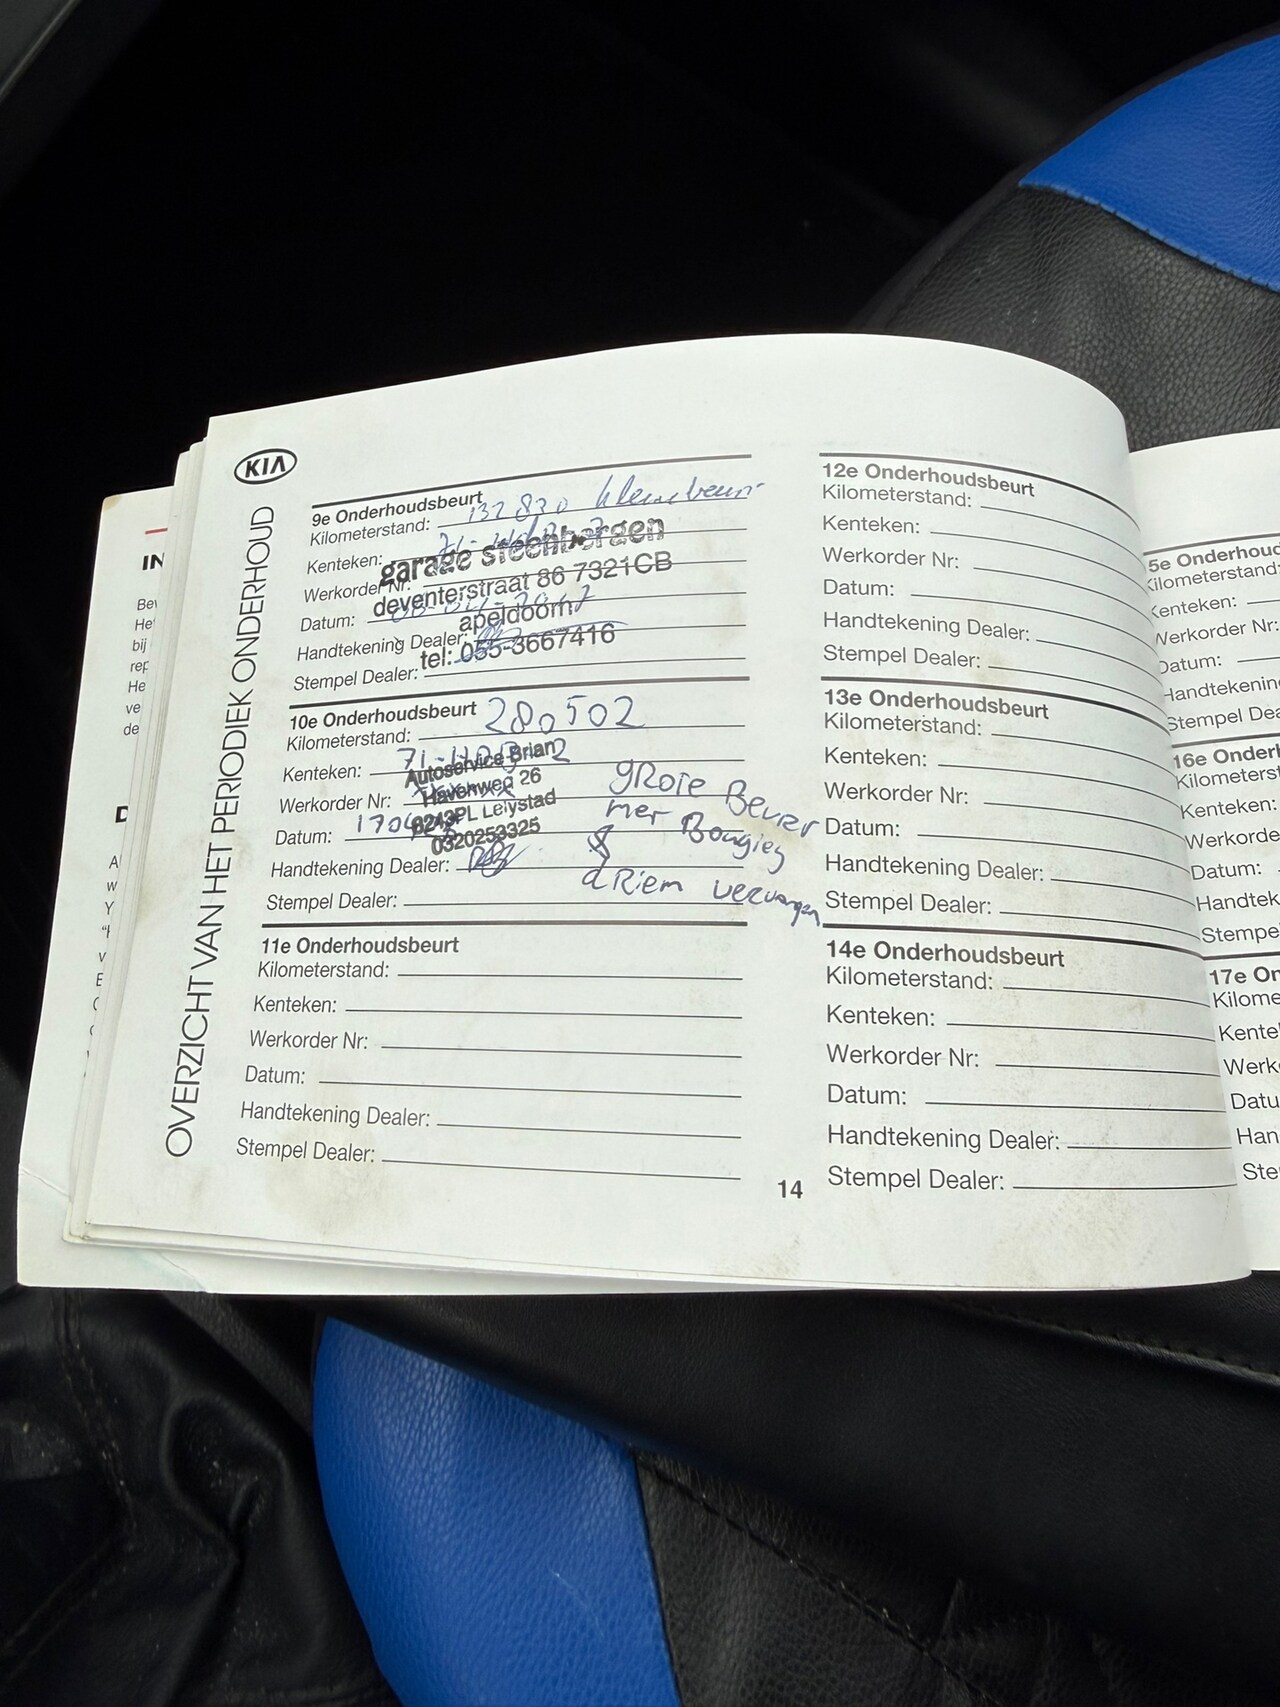 KIA
OVERZICHT VAN HET PERIODIEK ONDERHOUD
9e Onderhoudsbeurt
Kilometerstand: 132 830 kleine beurt
Kenteken: 71-
Werkorder Nr:
garage steenbergen
deventerstraat 86 7321CB
Datum:
apeldoorn
Handtekening Dealer:
tel: 055-3667416
Stempel Dealer:
10e Onderhoudsbeurt
Kilometerstand: 280502
Kenteken: 71-
Autoservice Brian
Werkorder Nr:
Havenweg 26
8243PL Lelystad
Datum: 1704
0320253325
Handtekening Dealer:
Stempel Dealer:
GROTE Beurt
met Bougies
&
dRiem vervangen
11e Onderhoudsbeurt
Kilometerstand:
Kenteken:
Werkorder Nr:
Datum:
Handtekening Dealer:
Stempel Dealer:
14
12e Onderhoudsbeurt
Kilometerstand:
Kenteken:
Werkorder Nr:
Datum:
Handtekening Dealer:
Stempel Dealer:
13e Onderhoudsbeurt
Kilometerstand:
Kenteken:
Werkorder Nr:
Datum:
Handtekening Dealer:
Stempel Dealer:
14e Onderhoudsbeurt
Kilometerstand:
Kenteken:
Werkorder Nr:
Datum:
Handtekening Dealer:
Stempel Dealer:
5e Onderhoud
Kilometerstand:
Kenteken:
Werkorder Nr:
Datum:
Handtekenin
Stempel Dea
16e Onderh
Kilometerst
Kenteken:
Werkorde
Datum:
Handtek
Stempe
17e On
Kilome
Kente
Werk
Datu
Han
Ste
IN
Bev
He
bij
rep
He
ve
de
D
A
w
Y
v
E